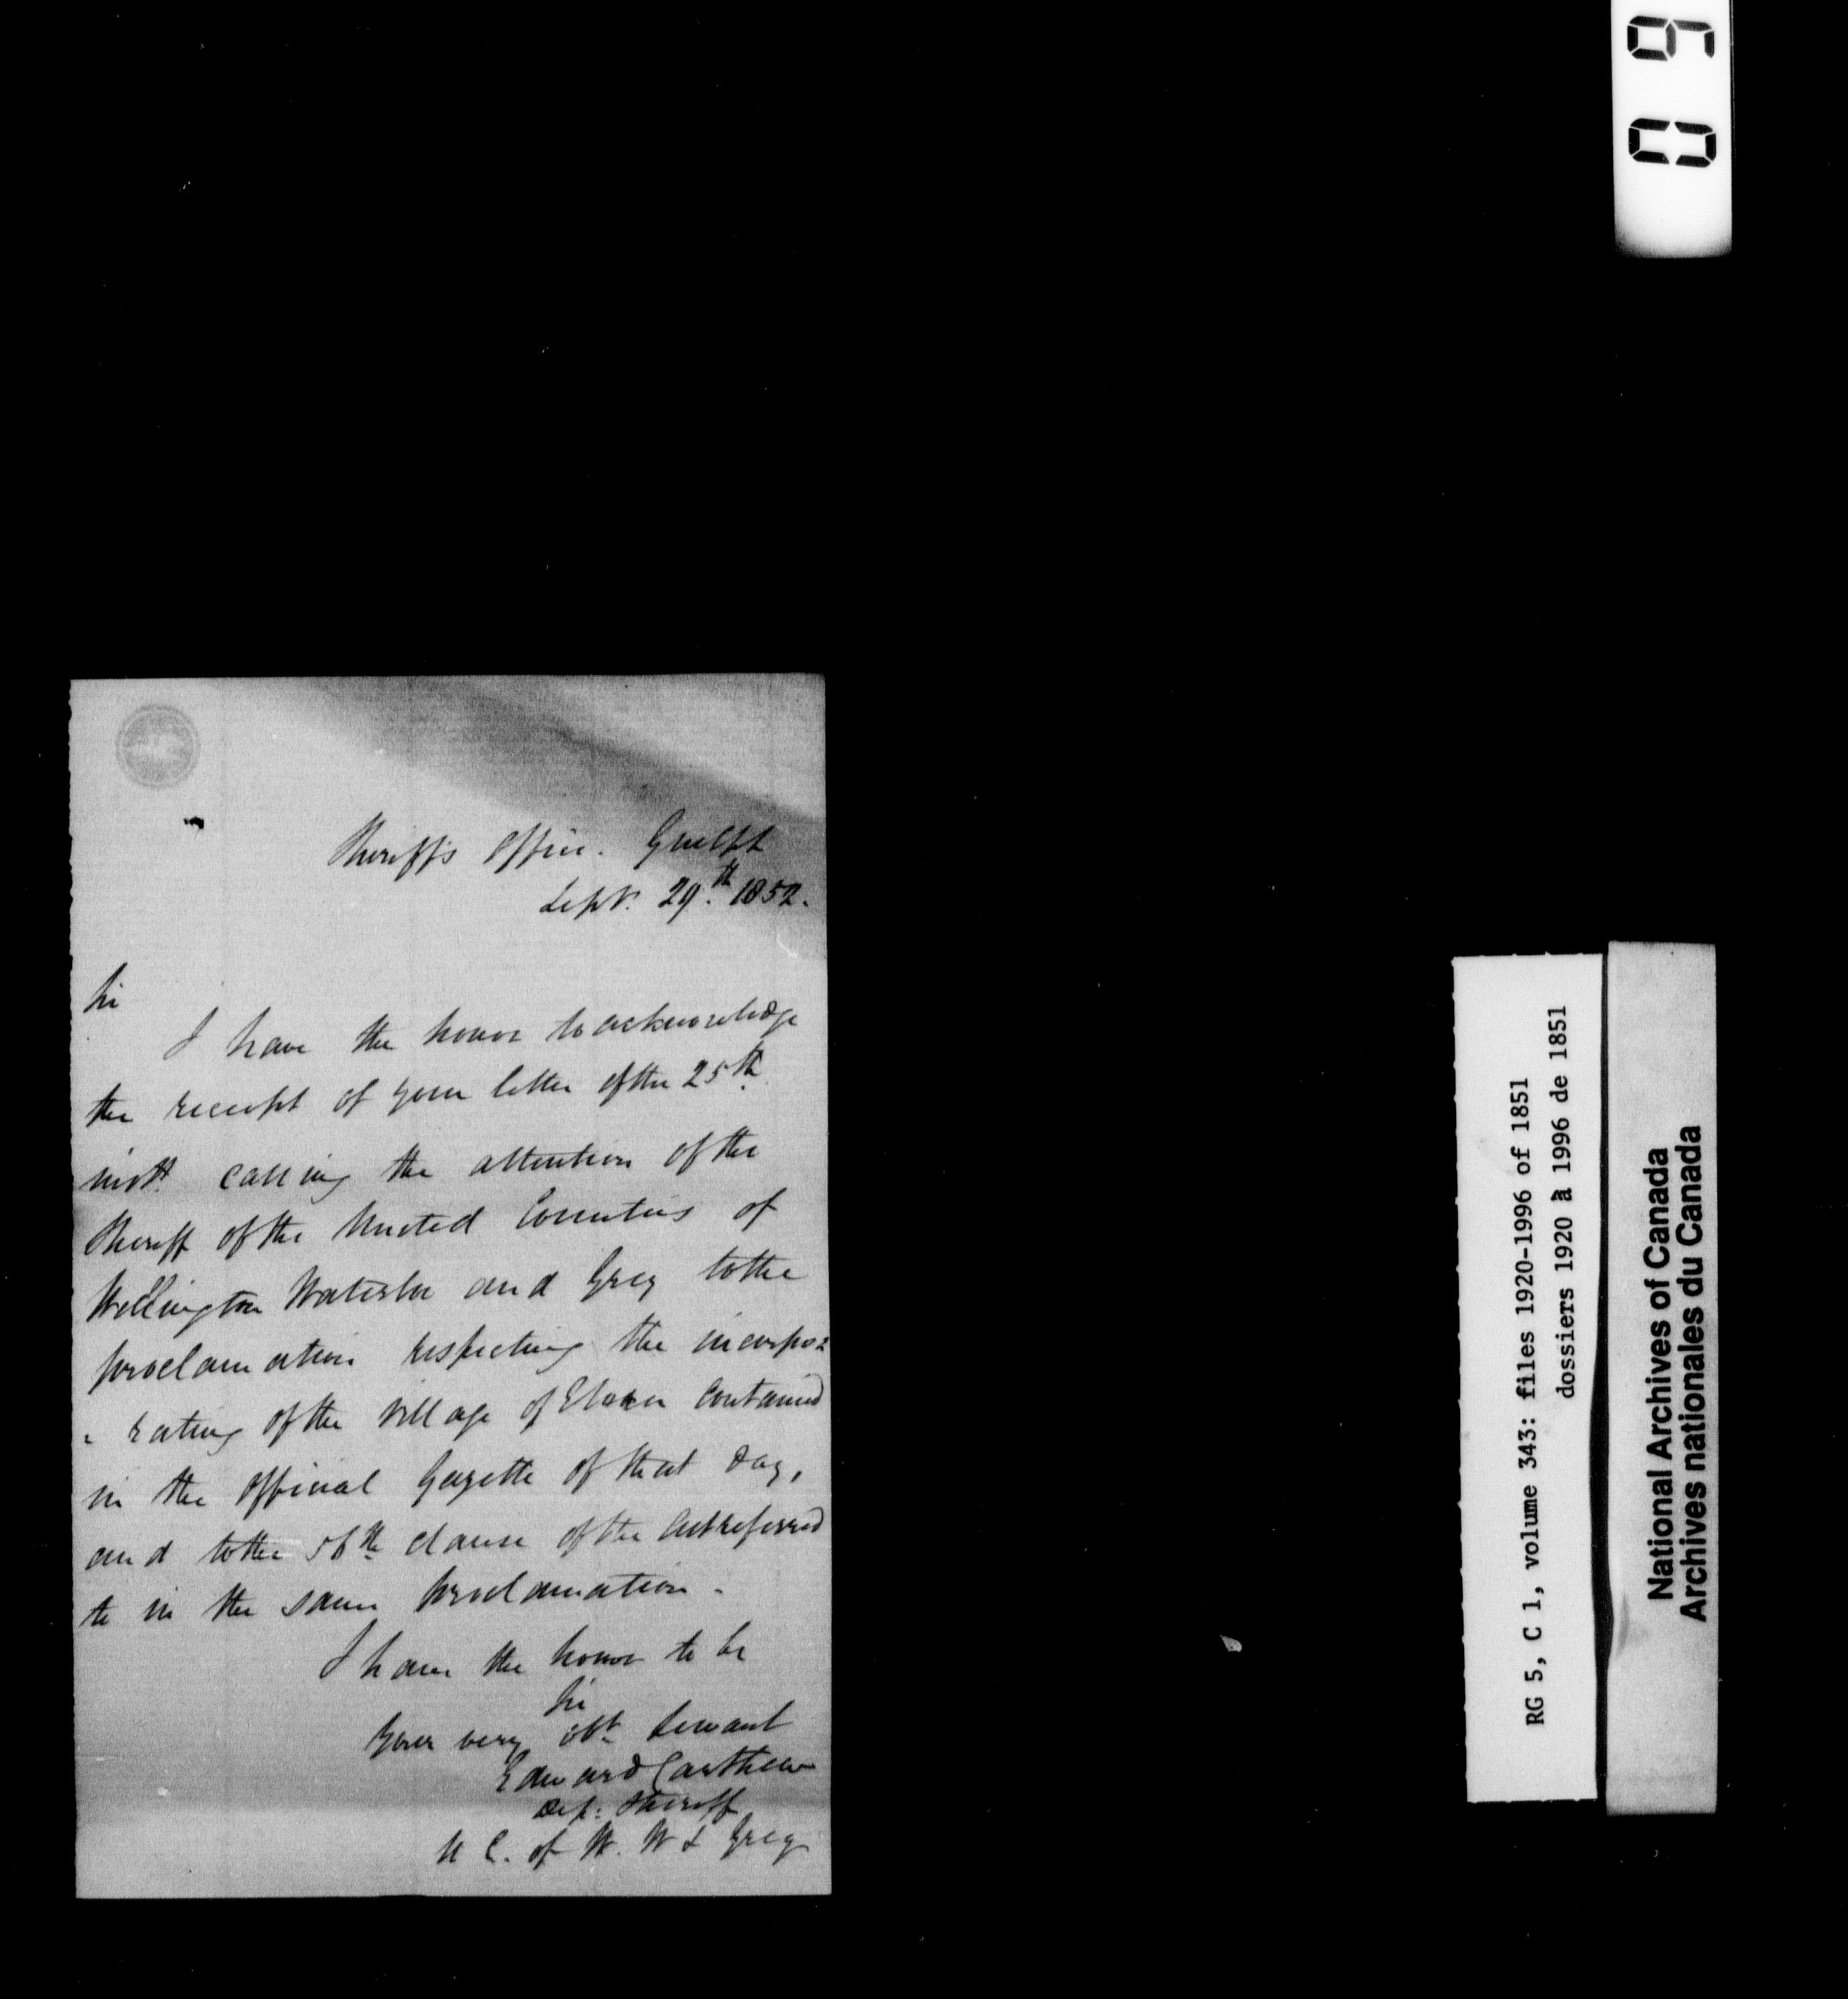 Sheriff's Office. Guelph
Sept. 29th 1852.
Sir
I have the honor to acknowledge
the receipt of your letter of the 25th
inst. calling the attention of the
Sheriff of the United Counties of
Wellington Waterloo and Grey to the
proclamation respecting the incorpo=
= rating of the Village of Elora contained
in the Official Gazette of that day,
and to the 56th clause of the Act referred
to in the same proclamation.
I have the honor to be
Sir
Your very obt. Servant
Edward Carthew
Dep: Sheriff
U C. of W. W & Grey
RG 5, C 1, volume 343: files 1920-1996 of 1851
dossiers 1920 à 1996 de 1851
National Archives of Canada
Archives nationales du Canada